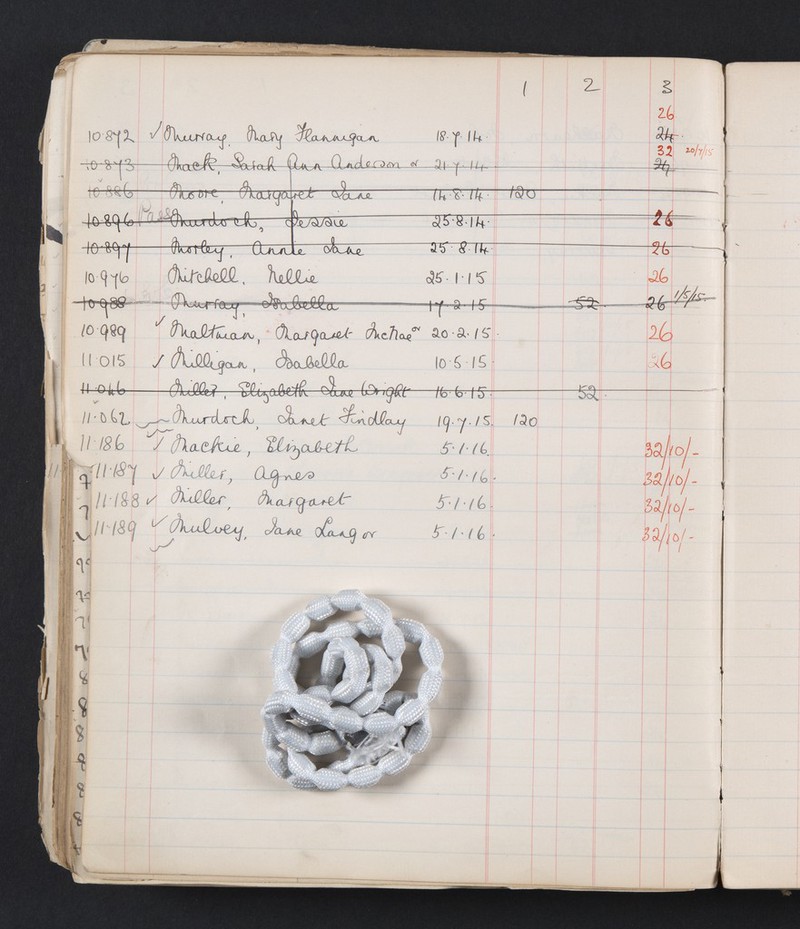 1 2 3
26
10.872 ✓ Murray, Mary Flannigan 18.7.14. 24.
32 20/7/15
10.873 Mack, Sarah Ann Anderson or 21.7.14. 24
10.886 Moore, Margaret Jane 14.8.14. 120
10.896 Murdoch, Jessie 25.8.14. 26
10.897 Morley, Annie Jane 25.8.14. 26
10.976 Mitchell, Nellie 25.1.15 26
10.988 Murray, Isabella 17.2.15 52. 26 1/5/15.
10.989 ✓ Maltman, Margaret McRae or 20.2.15. 26
11.015 ✓ Milligan, Isabella 10.5.15. 26
11.046 Miller, Elizabeth Jane Wright 16.6.15. 52.
11.062 Murdoch, Janet Findlay 19.7.15. 120
11.186 ✓ Mackie, Elizabeth 5.1.16. 32/10/-
11.187 ✓ Miller, Agnes 5.1.16. 32/10/-
11.188 ✓ Miller, Margaret 5.1.16. 32/10/-
11.189 ✓ Mulvey, Jane Lang or 5.1.16. 32/10/-